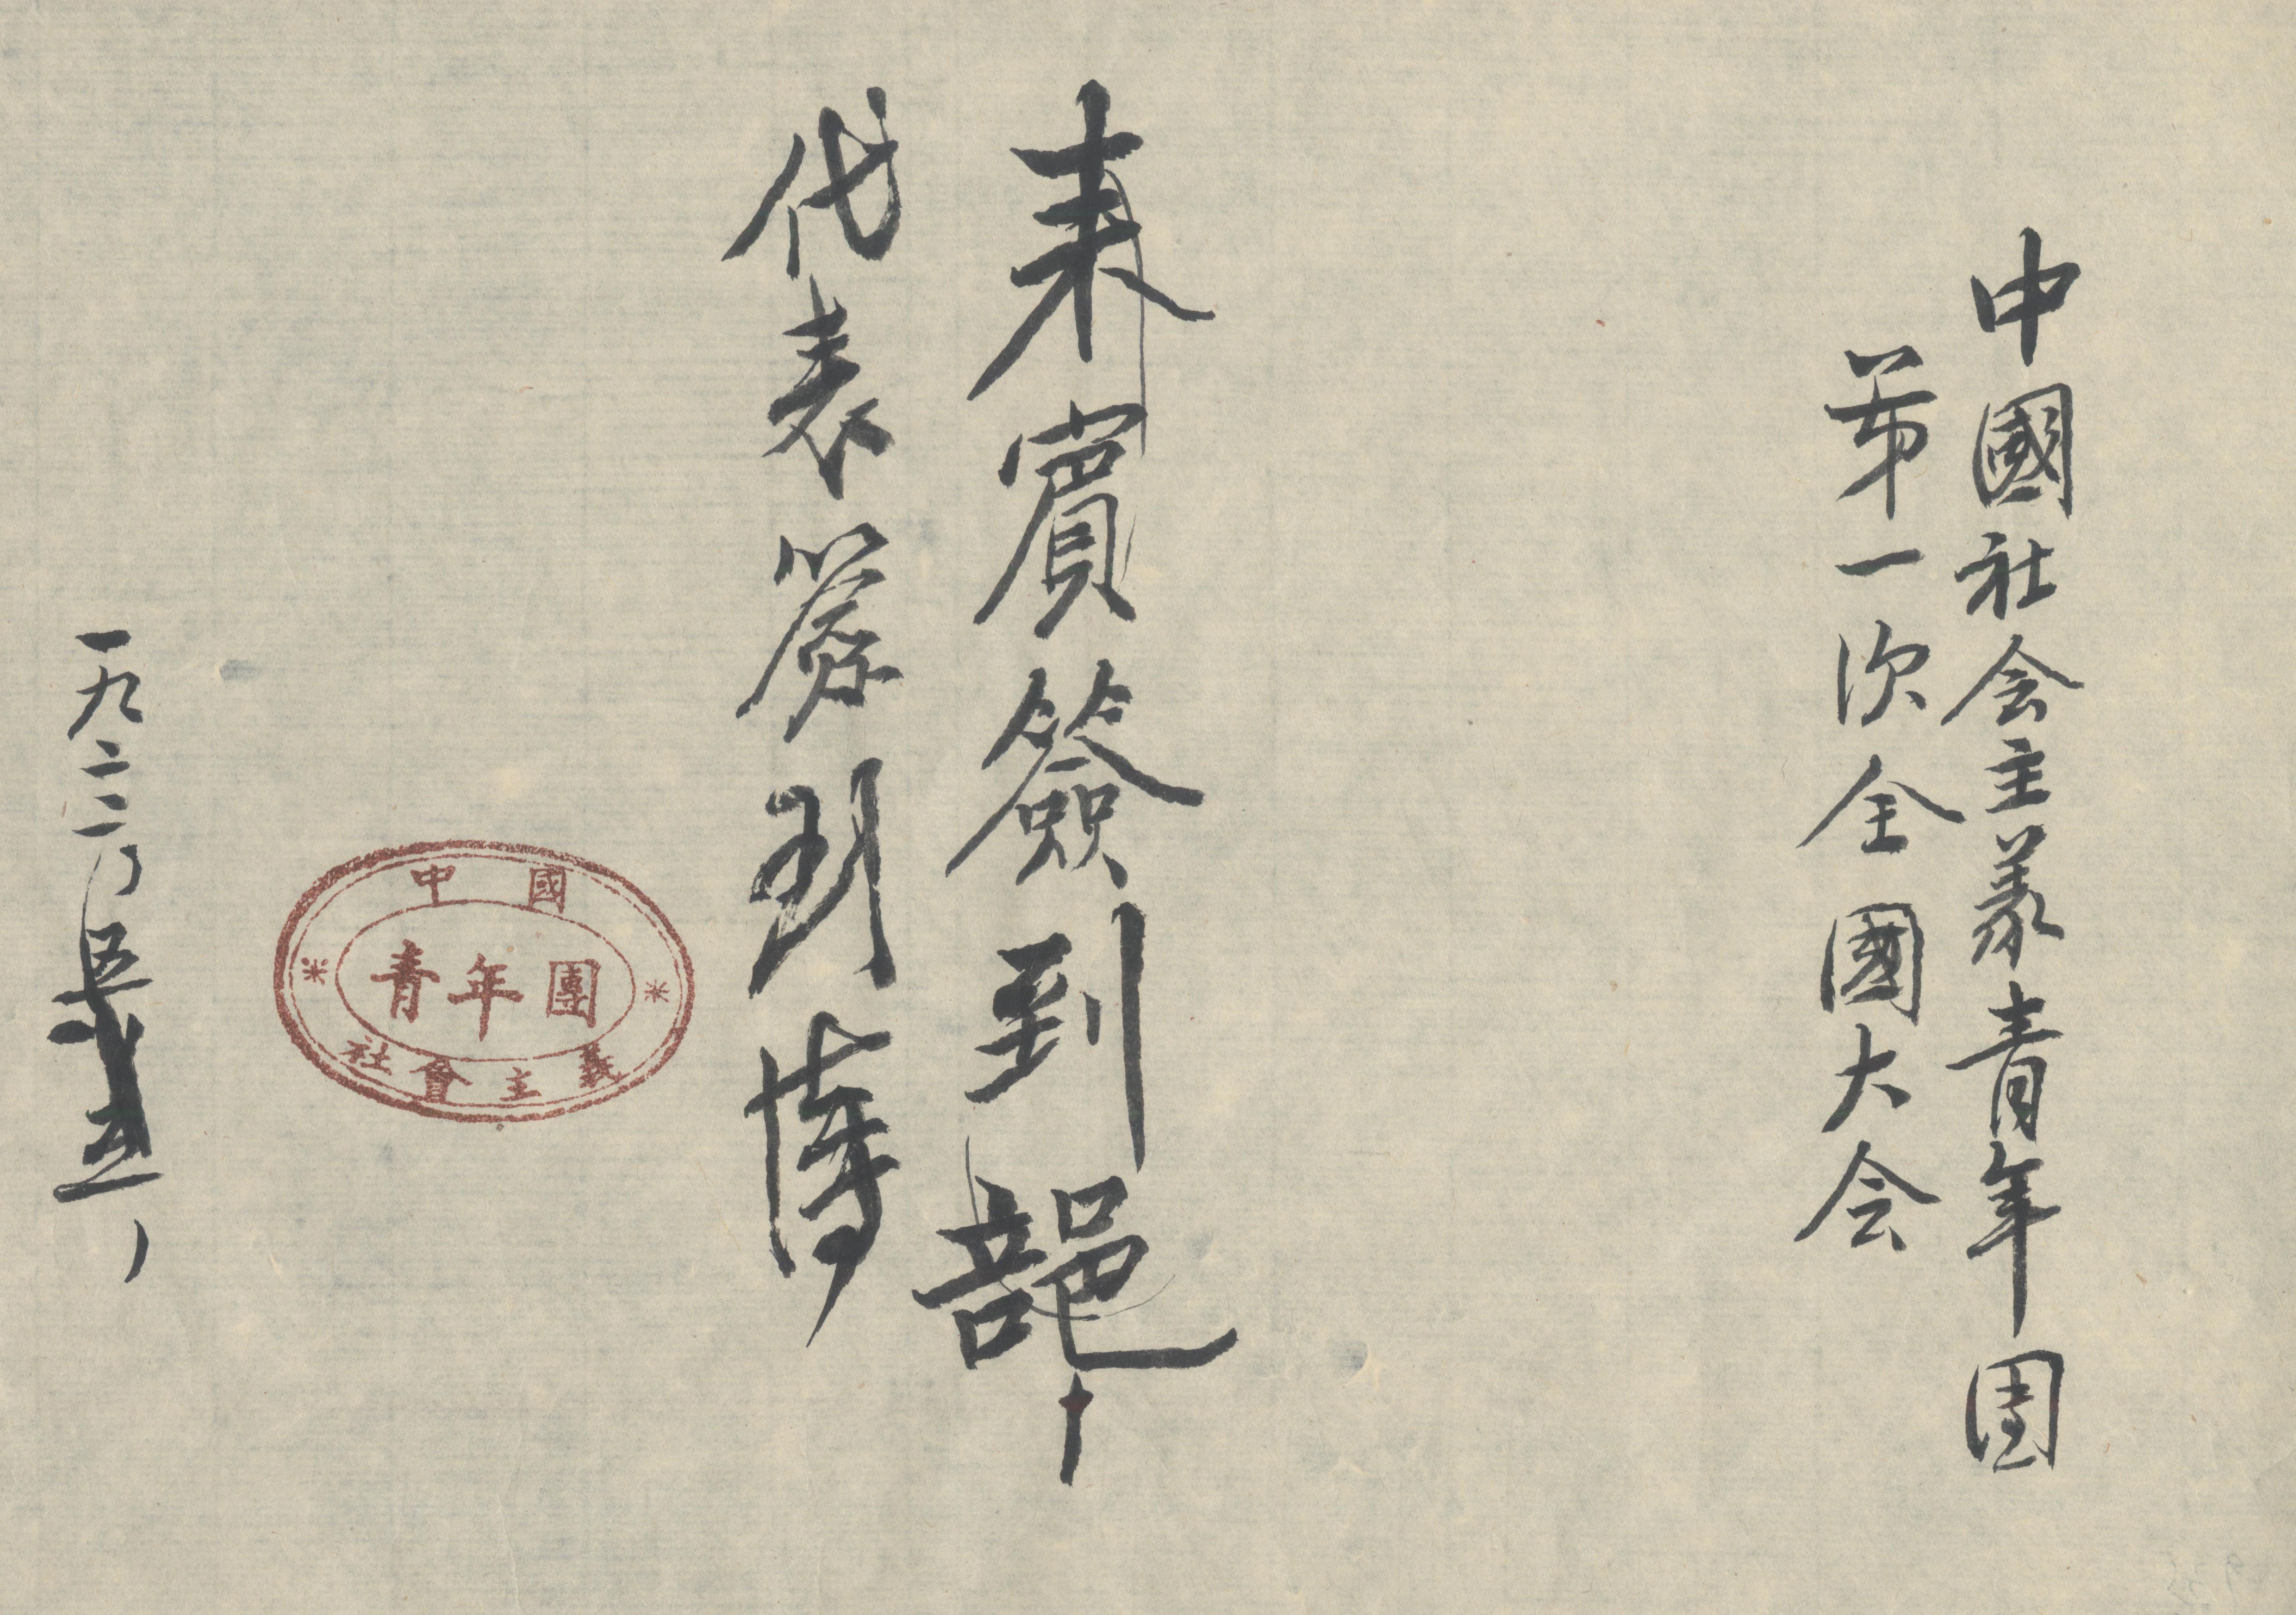 中國社会主義青年团
第一次全國大会
来賓簽到部
代表簽到博
中國
青年團
社會主義
一九二二、五、五、